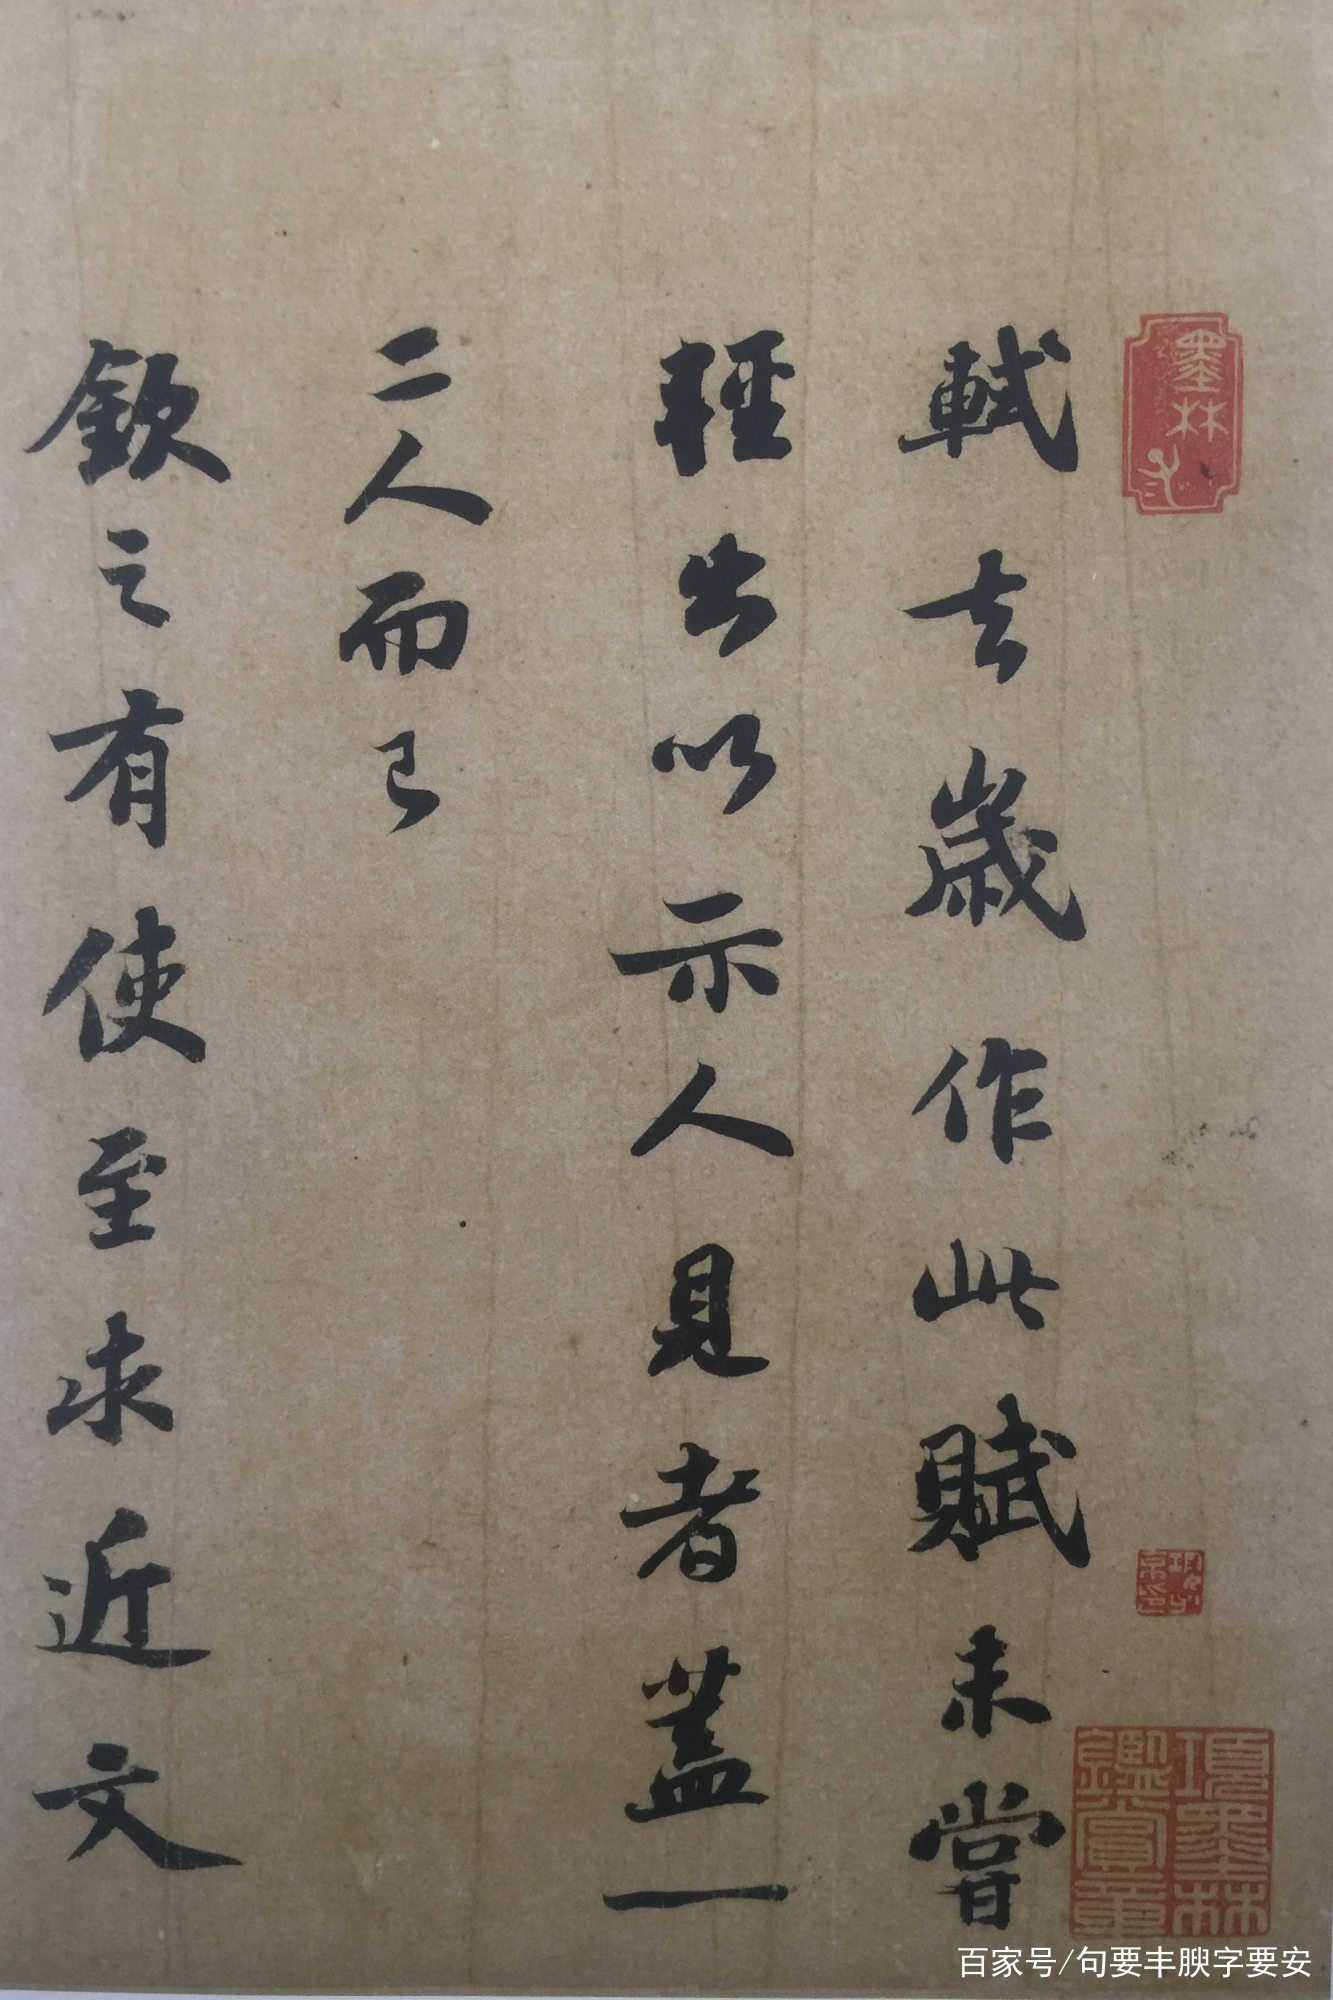 軾去歲作此賦未嘗
輕出以示人見者蓋一
二人而已
欽之有使至求近文
墨林
項墨林鑑賞章
百家号/句要丰腴字要安